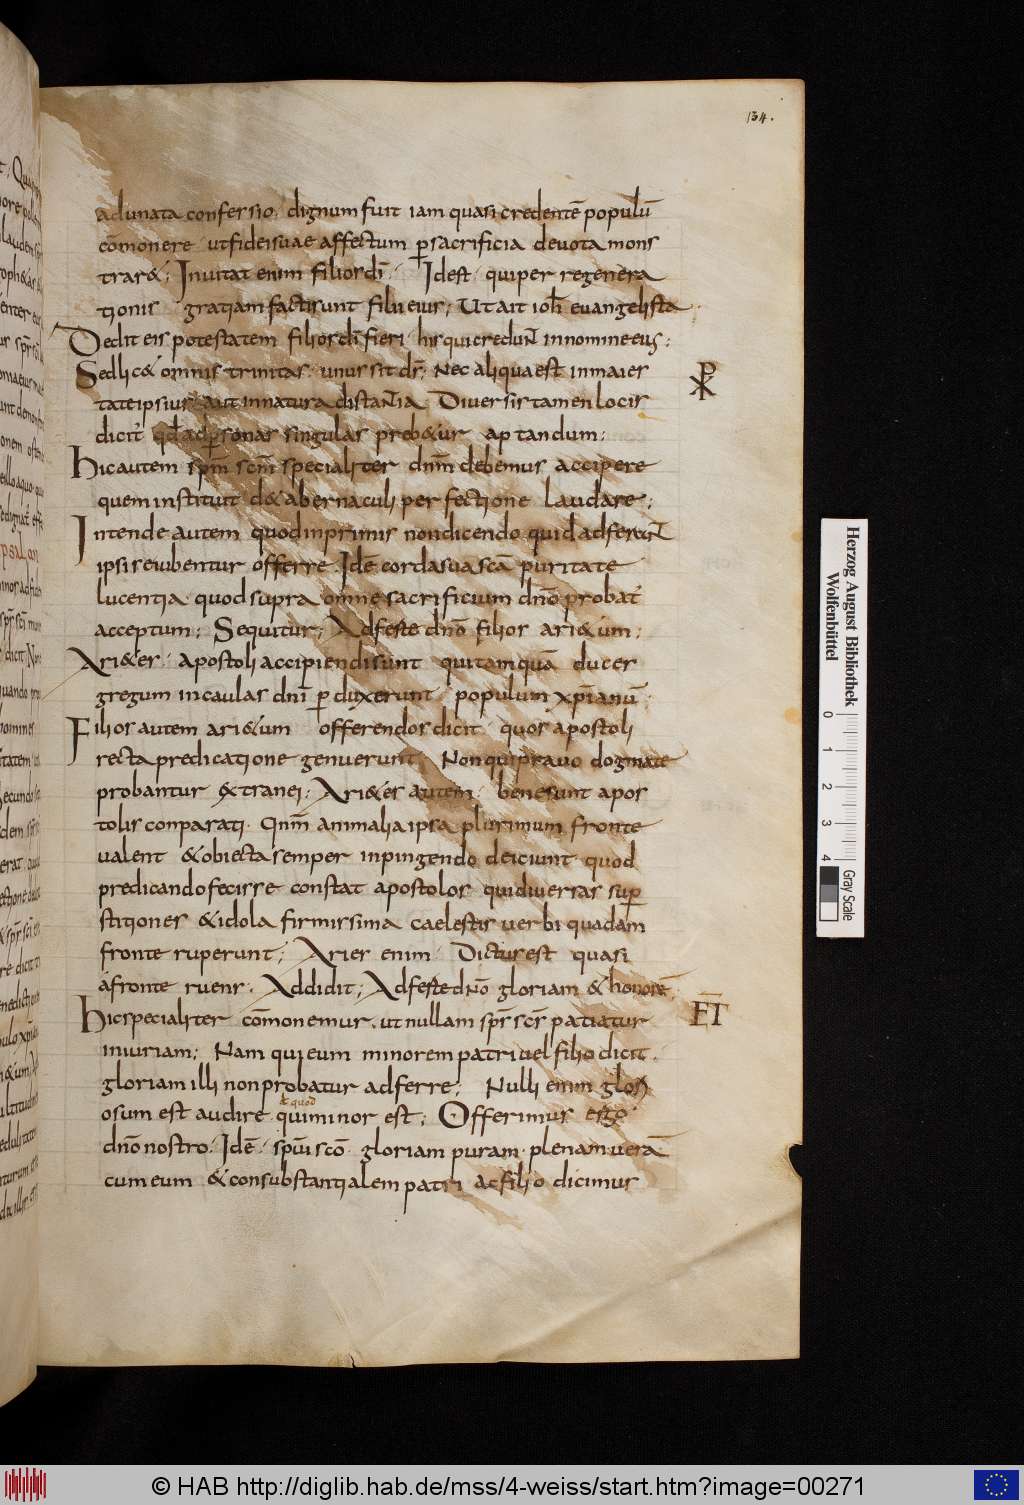 134.
adunata confessio; dignum fuit iam quasi credentē populū
cōmonere ut fidei suae affectum ꝑ sacrificia devota mons
trar&; Invitat enim filios dī; Idest qui per regenera
tionis gratiam facti sunt filii eius; Ut ait ioh̄ evangelista
Dedit eis potestatem filios dī fieri his qui credunt in nomine eus;
Sed lic& omnis trinitas unus sit ds̄; Nec aliqua est in maies
tate ipsius aut in natura distantia Diversis tamen locis
dicit qd̄ ad ꝑsonas singulas preb&ur aptandum;
Hic autem spm̄ scm̄ specialiter dnm̄ debemus accipere
quem instituit de tabernaculi perfectione laudare;
Intende autem quod inprimis non dicendo quid adferunt
ipsi se iubentur offerre. Idē corda sua scā puritate
lucentia quod supra omne sacrificium dnō probat
acceptum; Sequitur; Adferte dnō filios ari&um;
Ari&es apostoli accipiendi sunt qui tamquā duces
gregum in caulas dnī ꝑduxerunt populum xp̄ianū
Filios autem ari&um offerendos dicit quos apostoli
recta predicatione genuerunt Non qui pravo dogmate
probantur &tranei; Ari&es autem bene sunt apos
tolis conparati. Qnm̄ animalia ipsa plurimum fronte
valent & obiecta semper inpingendo deiciunt quod
predicando fecisse constat apostolos qui diversas suꝑ
stitiones & idola firmissima caelestis verbi quadam
fronte ruperunt; Aries enim Dictus est quasi
a fronte ruens. Addidit; Adferte dnō gloriam & honorē
Hic specialiter cōmonemur ut nullam sps̄ scs̄ patiatur
iniuriam; Nam qui eum minorem patri vel filio dicit
gloriam illi non probatur adferre; Nulli enim glori
osum est audire qui minor est; Offerimus ergo
ł quod
dnō nostro Idē spūi scō gloriam puram plenam verā
cum eum & consubstantialem patri ac filio dicimus
Herzog August Bibliothek
Wolfenbüttel
0 1 2 3 4
Gray Scale
© HAB http://diglib.hab.de/mss/4-weiss/start.htm?image=00271